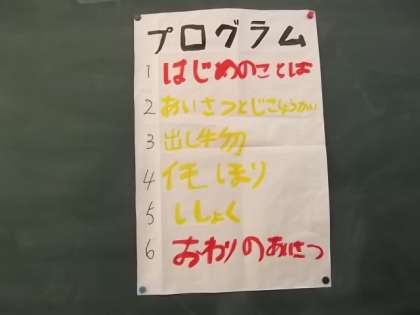 プログラム
1 はじめのことば
2 あいさつとじこしょうかい
3 出し物
4 イモほり
5 ししょく
6 おわりのあいさつ